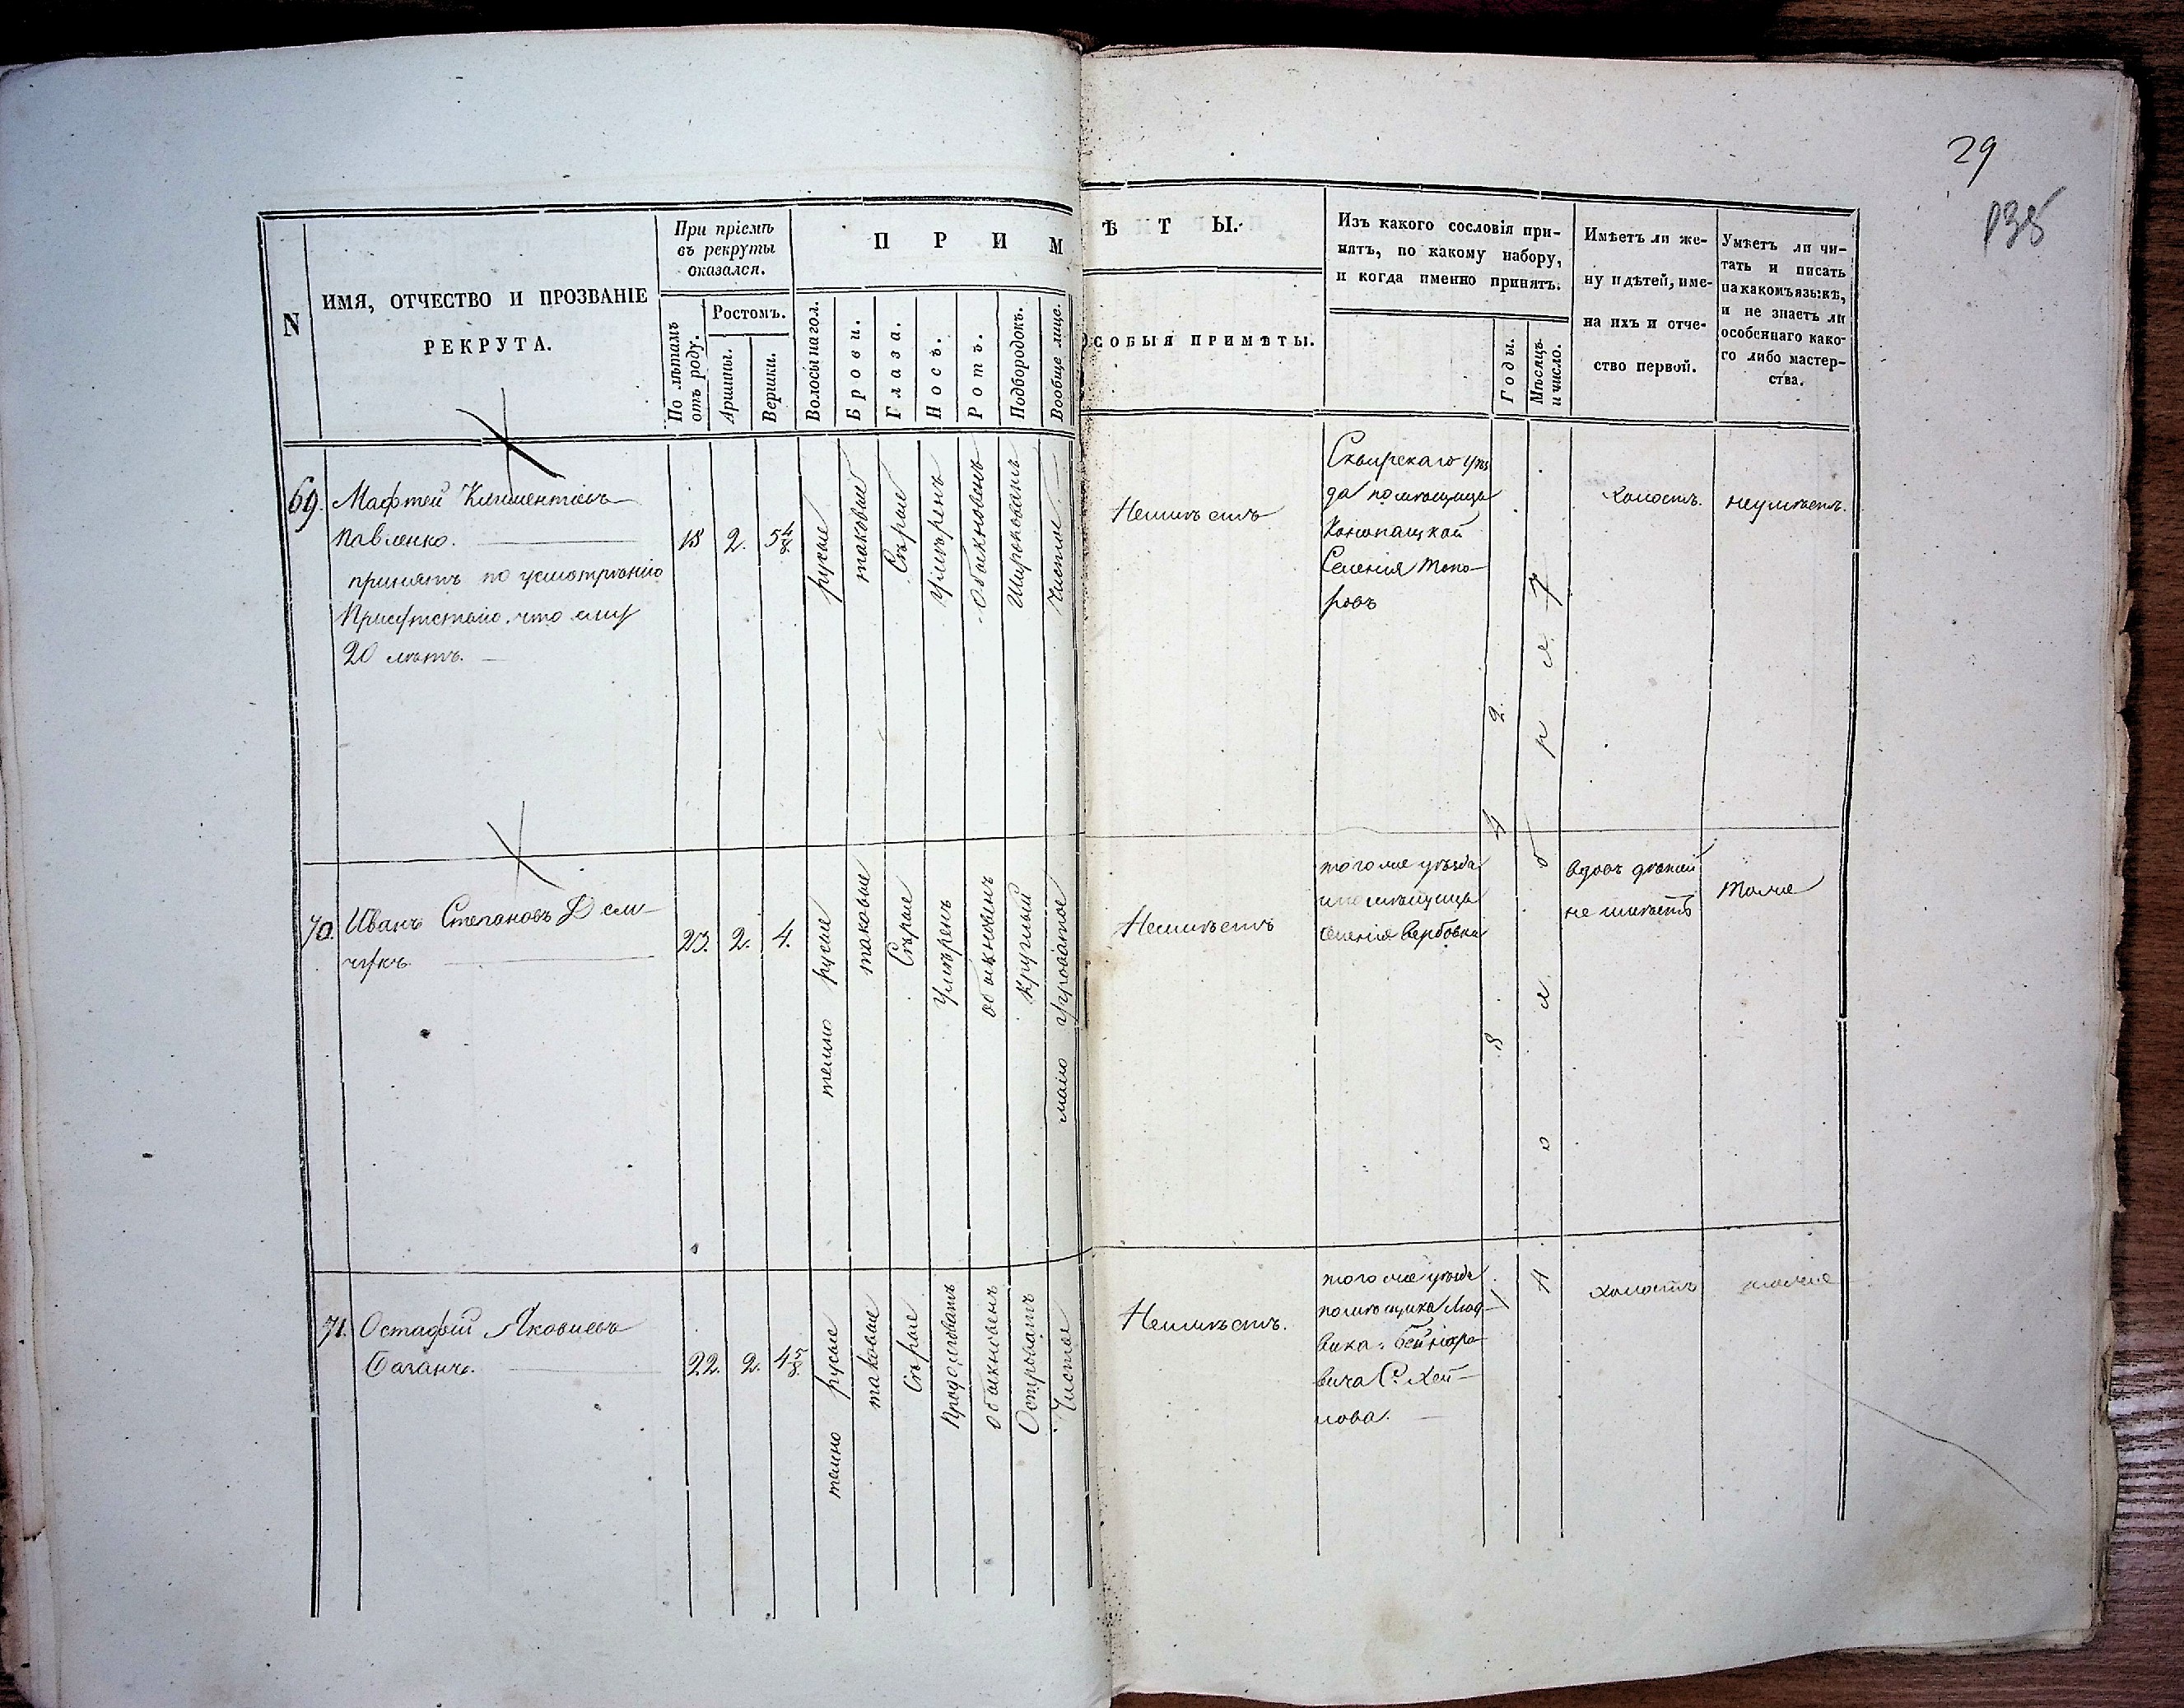 29
138
N
ИМЯ, ОТЧЕСТВО И ПРОЗВАНІЕ
РЕКРУТА.
При пріемѣ
въ рекруты
оказался.
По лѣтамъ
отъ роду.
Ростомъ.
Аршины.
Вершки.
П Р И М
Волосы на гол.
Брови.
Глаза.
Носъ.
Ротъ.
Подбородокъ.
Вообще лице.
Ѣ Т Ы.
ОСОБЫЯ ПРИМѢТЫ.
Изъ какого сословія при-
нятъ, по какому набору,
и когда именно принятъ.
Годы.
Мѣсяцъ
и число.
Имѣетъ ли же-
ну и дѣтей, име-
на ихъ и отче-
ство первой.
Умѣетъ ли чи-
тать и писать
на какомъ языкѣ,
и не знаетъ ли
особеннаго како-
го либо мастер-
ства.
69.
Мафтей Климентіевъ
Павленко.
принятъ по усмотрѣнію
Присутствія, что ему
20 лѣтъ.
18
2.
5 4/8
русые
таковые
Сѣрые
Умѣренъ
Обыкновенъ
Широковатъ
Чистое
Неимѣетъ
Сквирскаго уѣз
да помѣщицы
Конопацкой
Селенія Топо-
ровъ
холостъ.
неумѣетъ.
70.
Иванъ Степановъ Дем-
чукъ
23.
2.
4.
темно русые
таковые
Сѣрые
Умѣренъ
обыкновенъ
Круглый
мало угроватое
Неимѣетъ
того же уѣзда
помѣщицы
селенія Вербовки
вдовъ дѣтей
не имѣетъ
Тоже
71.
Остафій Яковлевъ
Баганъ.
22.
2.
4 5/8
темно русые
таковые
Сѣрые
Продолговатъ
обыкновенъ
Островатъ
Чистое
Неимѣетъ.
того же уѣзда
помѣщика Люд-
вика
вича С.
лова.
холостъ
тоже
1 8 4 2.
Н о я б р я 7